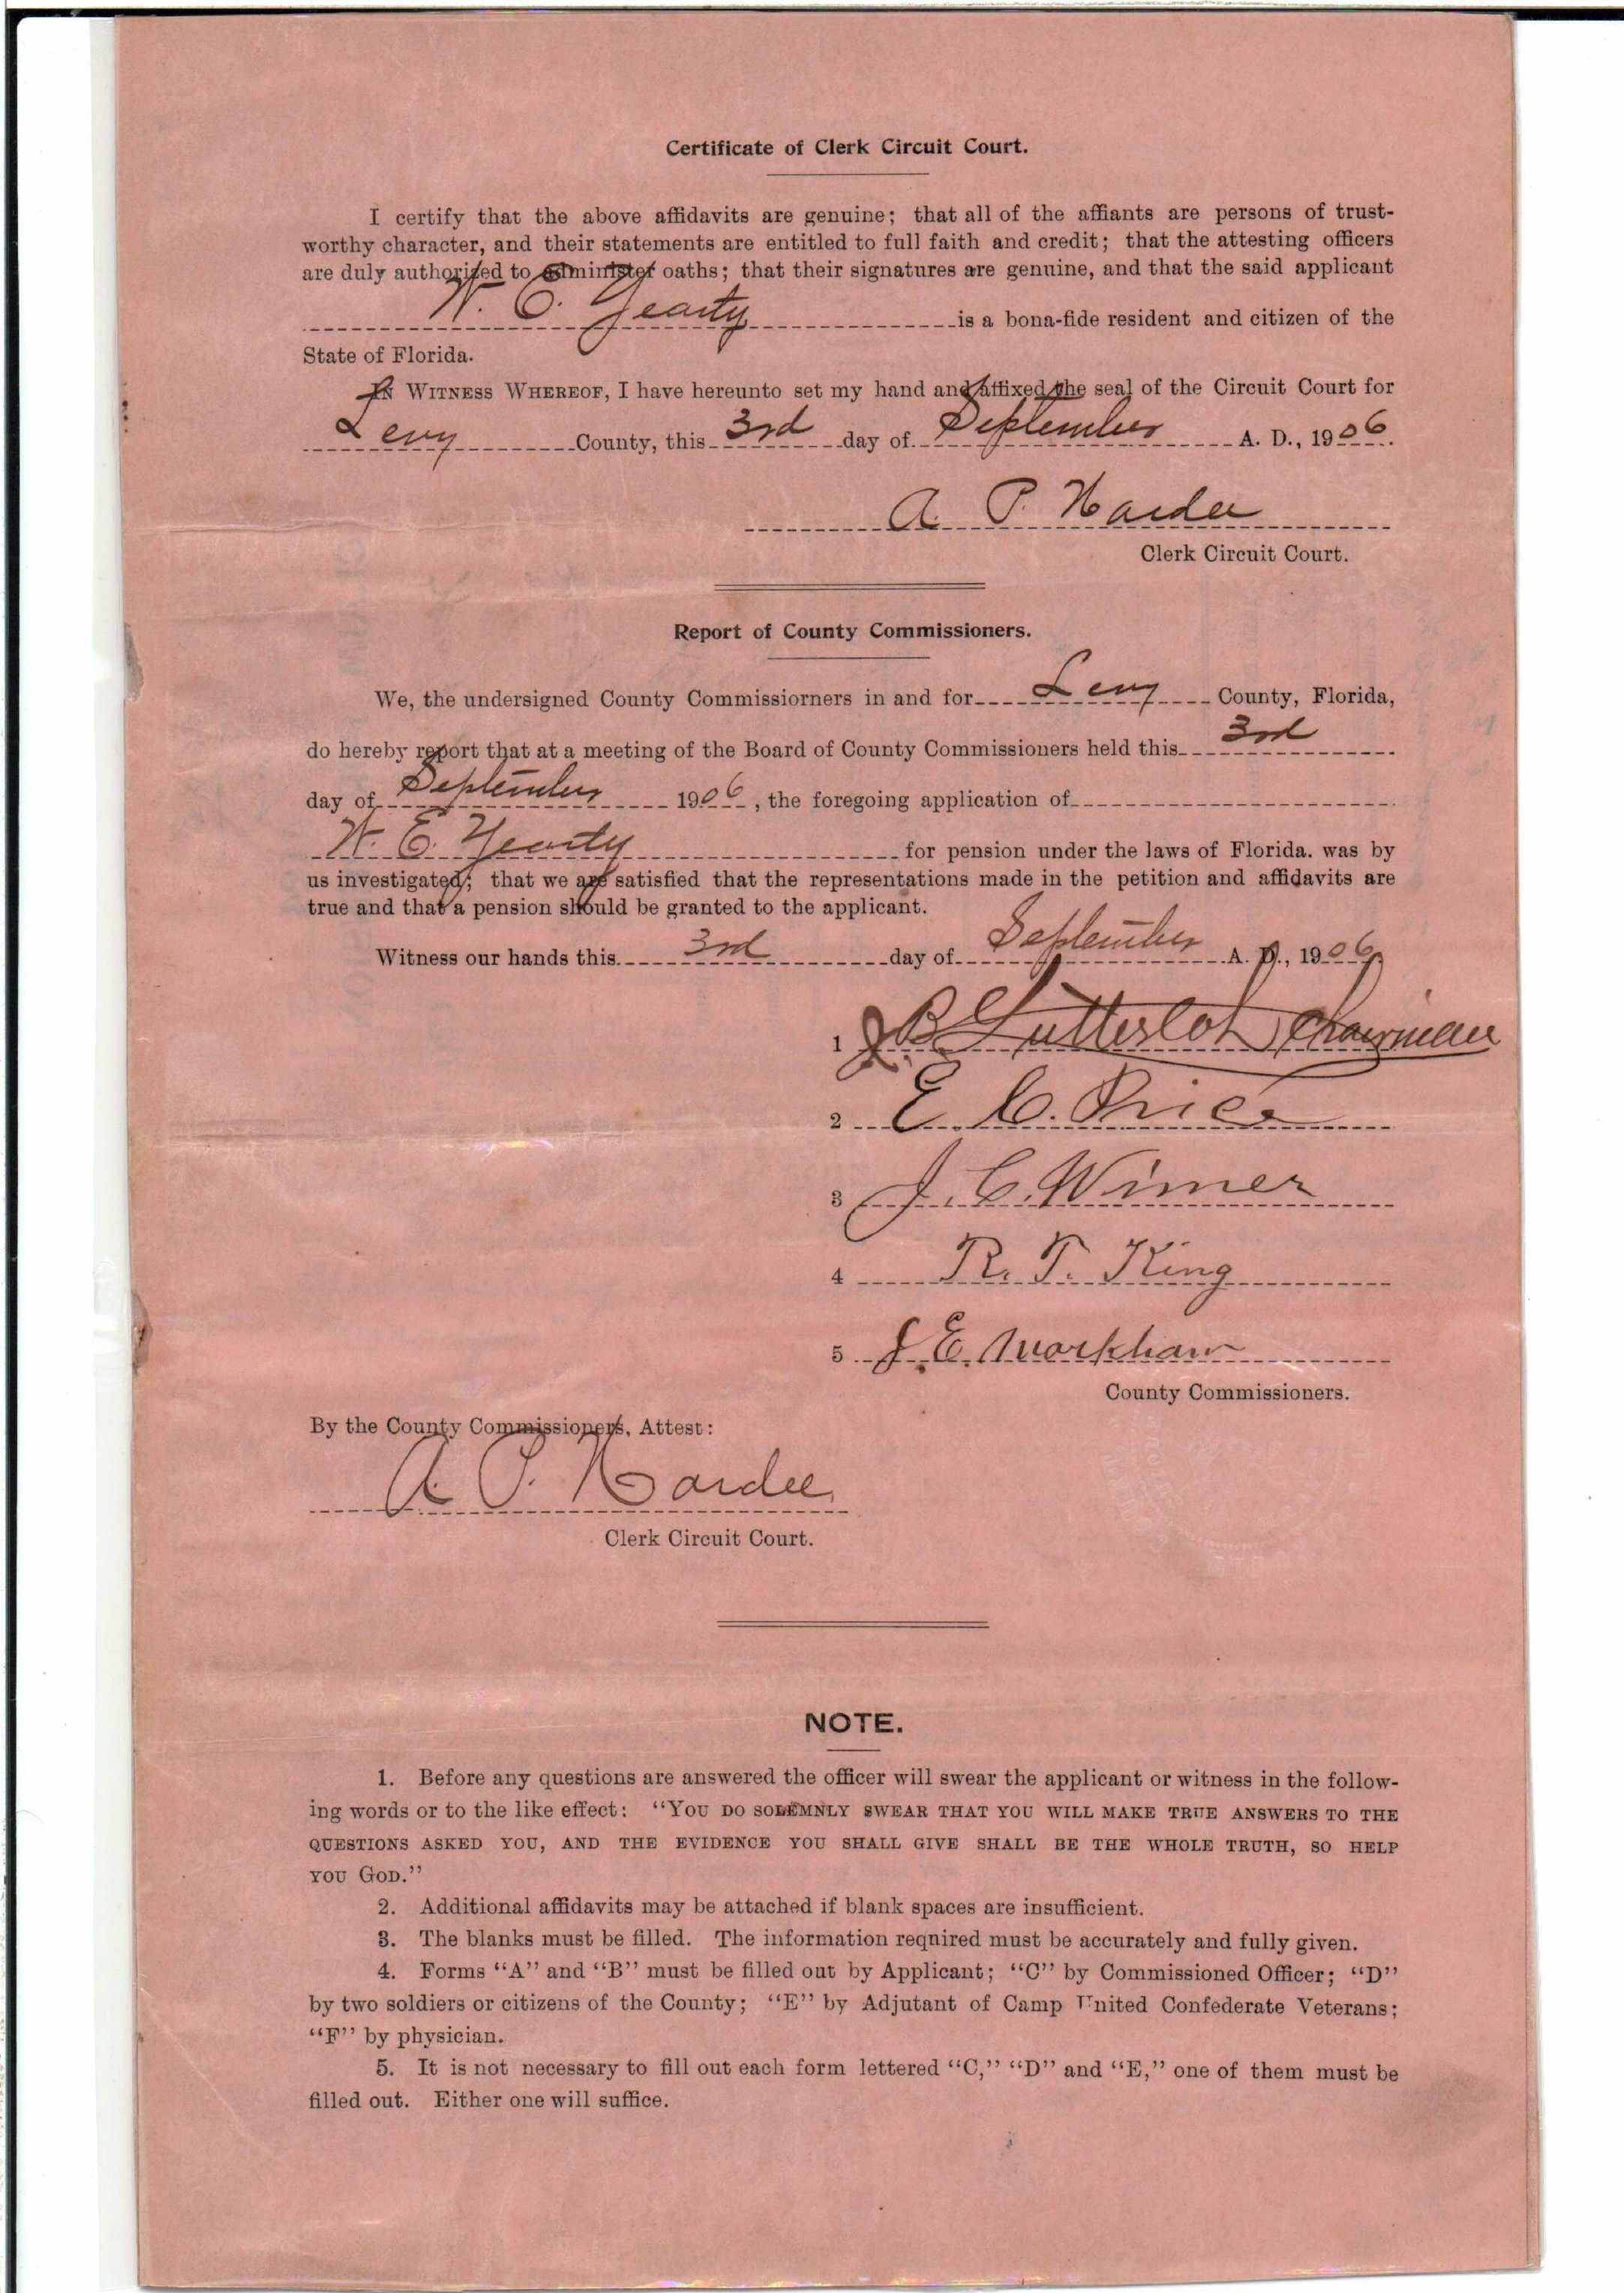 Certificate of Clerk Circuit Court.
I certify that the above affidavits are genuine; that all of the affiants are persons of trust-
worthy character, and their statements are entitled to full faith and credit; that the attesting officers
are duly authorized to administer oaths; that their signatures are genuine, and that the said applicant
W. E. Yearty is a bona-fide resident and citizen of the
State of Florida.
IN WITNESS WHEREOF, I have hereunto set my hand and affixed the seal of the Circuit Court for
Levy County, this 3rd day of September A. D., 1906.
A. P. Hardee
Clerk Circuit Court.
Report of County Commissioners.
We, the undersigned County Commissiorners in and for Levy County, Florida,
do hereby report that at a meeting of the Board of County Commissioners held this 3rd
day of September 1906, the foregoing application of
W. E. Yearty for pension under the laws of Florida. was by
us investigated; that we are satisfied that the representations made in the petition and affidavits are
true and that a pension should be granted to the applicant.
Witness our hands this 3rd day of September A. D., 1906
1 J B Sutterloh, Chairman
2 E C. Price
3 J. C. Wimer
4 R. T. King
5 J. E. Markham
County Commissioners.
By the County Commissioners, Attest:
A. P. Hardee
Clerk Circuit Court.
NOTE.
1. Before any questions are answered the officer will swear the applicant or witness in the follow-
ing words or to the like effect: "YOU DO SOLEMNLY SWEAR THAT YOU WILL MAKE TRUE ANSWERS TO THE
QUESTIONS ASKED YOU, AND THE EVIDENCE YOU SHALL GIVE SHALL BE THE WHOLE TRUTH, SO HELP
YOU GOD."
2. Additional affidavits may be attached if blank spaces are insufficient.
3. The blanks must be filled. The information reqnired must be accurately and fully given.
4. Forms "A" and "B" must be filled out by Applicant; "C" by Commissioned Officer; "D"
by two soldiers or citizens of the County; "E" by Adjutant of Camp United Confederate Veterans;
"F" by physician.
5. It is not necessary to fill out each form lettered "C," "D" and "E," one of them must be
filled out. Either one will suffice.